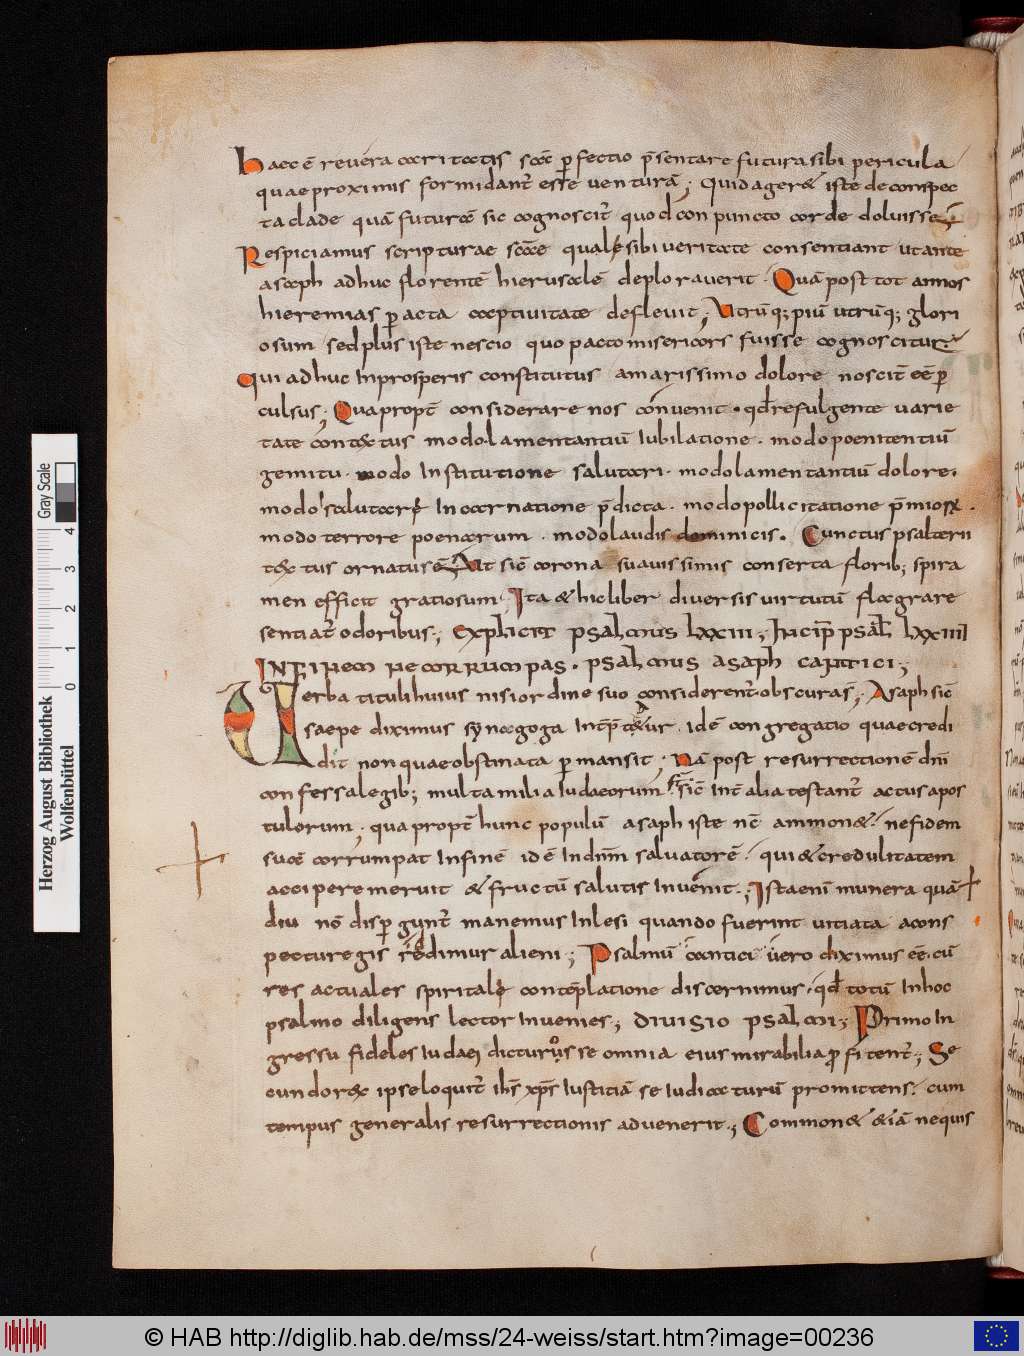 haec ē revera caritatis scāe p̄fectio p̄sentare futura sibi pericula
quae proximis formidant̄ esse venturā; Quid ager& iste de conspec
ta clade quā futurā sic cognoscit̄ quod conpuncto corde doluisse;
Respiciamus scripturae scāe quale sibi veritate consentiant ut ante
asaph adhuc florentē hierusalē deploraverit. Quā post tot annos
hieremias p̄acta captivitate deflevit; Utrūq; piū utrūq; glori
osum sed plus iste nescio quo pacto misericors fuisse cognoscitur
Qui adhuc Inprosperis constitutus amarissimo dolore noscit ēē p̄
culsus; Quapropt̄ considerare nos convenit. qđ refulgente varie
tate contextus modo lamentantiū Iubilatione. modo poenitentiū
gemitu. modo Institutione salutari. modo lamentantiū dolore.
modo salutare Incarnatione p̄dicta. modo pollicitatione p̄mioꝝ.
modo terrore poenarum. modo laudis dominicis. Cunctus psalterii
textus ornatus ē; Ut sic corona suavissimis conserta florib; spira
men efficit gratiosum. Ita & hic liber diversis virtutū flagrare
sentiat̄ odoribus; explicit psalmus LXXIII; Incip̄ psal̄ LXXIIII
INFINEM NE CORRUMPAS. psalmus asaph cantici;
Verba tituli huius nisi ordine suo considerent̄ obscura s̄; Asaph sic
saepe diximus synagoga Int̄p̄taetur. idē congregatio quae credi
dit non quae obstinata p̄mansit; Nā post resurrectionē dn̄i
confessa legib; multa milia Iudaeorum sic Int̄ alia testant̄ actus apos
tulorum. quapropt̄ hunc populū asaph iste nc̄ ammon&. ne fidem
suā corrumpat Infinē idē Indn̄m salvatorē. qui & credulitatem
accipere meruit & fructū salutis Invenit.; Ista enī munera quā
diu nō disp̄gunt̄ manemus Inlesi quando fuerint vitiata a cons
pectu regis reddimur alieni; Psalmū cantici vero diximus ēē. cū
res actuales spiritale contēplatione discernimus. qđ totū Inhoc
psalmo diligens lector Invenies; DIVISIO psalmi; Primo In
gressu fideles Iudaei dicturos se omnia eius mirabilia profitent̄; Se
cundo rex ipse loquit̄ ihs̄ xps̄ Iustitiā se Iudicaturū promittens. cum
tempus generalis resurrectionis advenerit.; Common& &iā nequis
Herzog August Bibliothek
Wolfenbüttel
Gray Scale
0 1 2 3 4
© HAB http://diglib.hab.de/mss/24-weiss/start.htm?image=00236